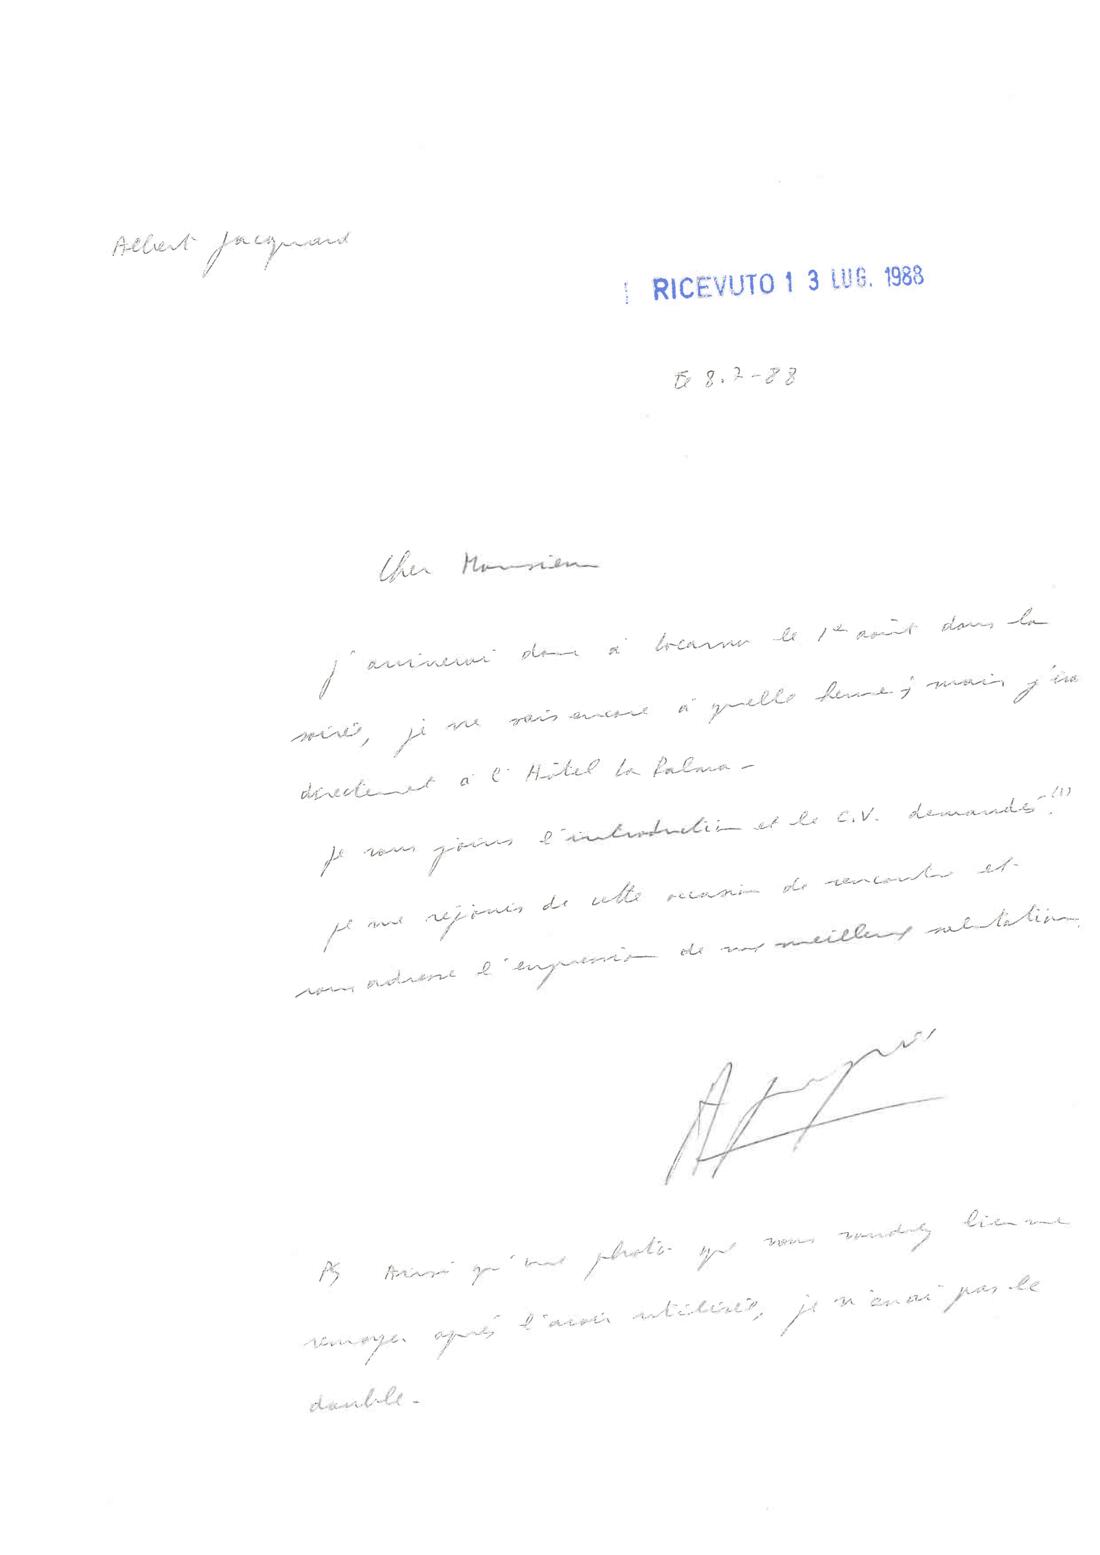 Albert Jacquard
RICEVUTO 13 LUG. 1988
le 8.7-88
Cher Monsieur
J'arriverai donc à Locarno le 1er août dans la
soirée, je ne sais encore à quelle heure ; mais j'irai
directement à l'Hôtel La Palma -
Je vous joins l'introduction et le C.V. demandés. (1)
Je me réjouis de cette occasion de rencontre et
vous adresse l'expression de mes meilleures salutations.
A Jacquard
PS Ainsi qu'une photo que vous voudrez bien me
renvoyer après l'avoir utilisée, je n'en ai pas le
double -